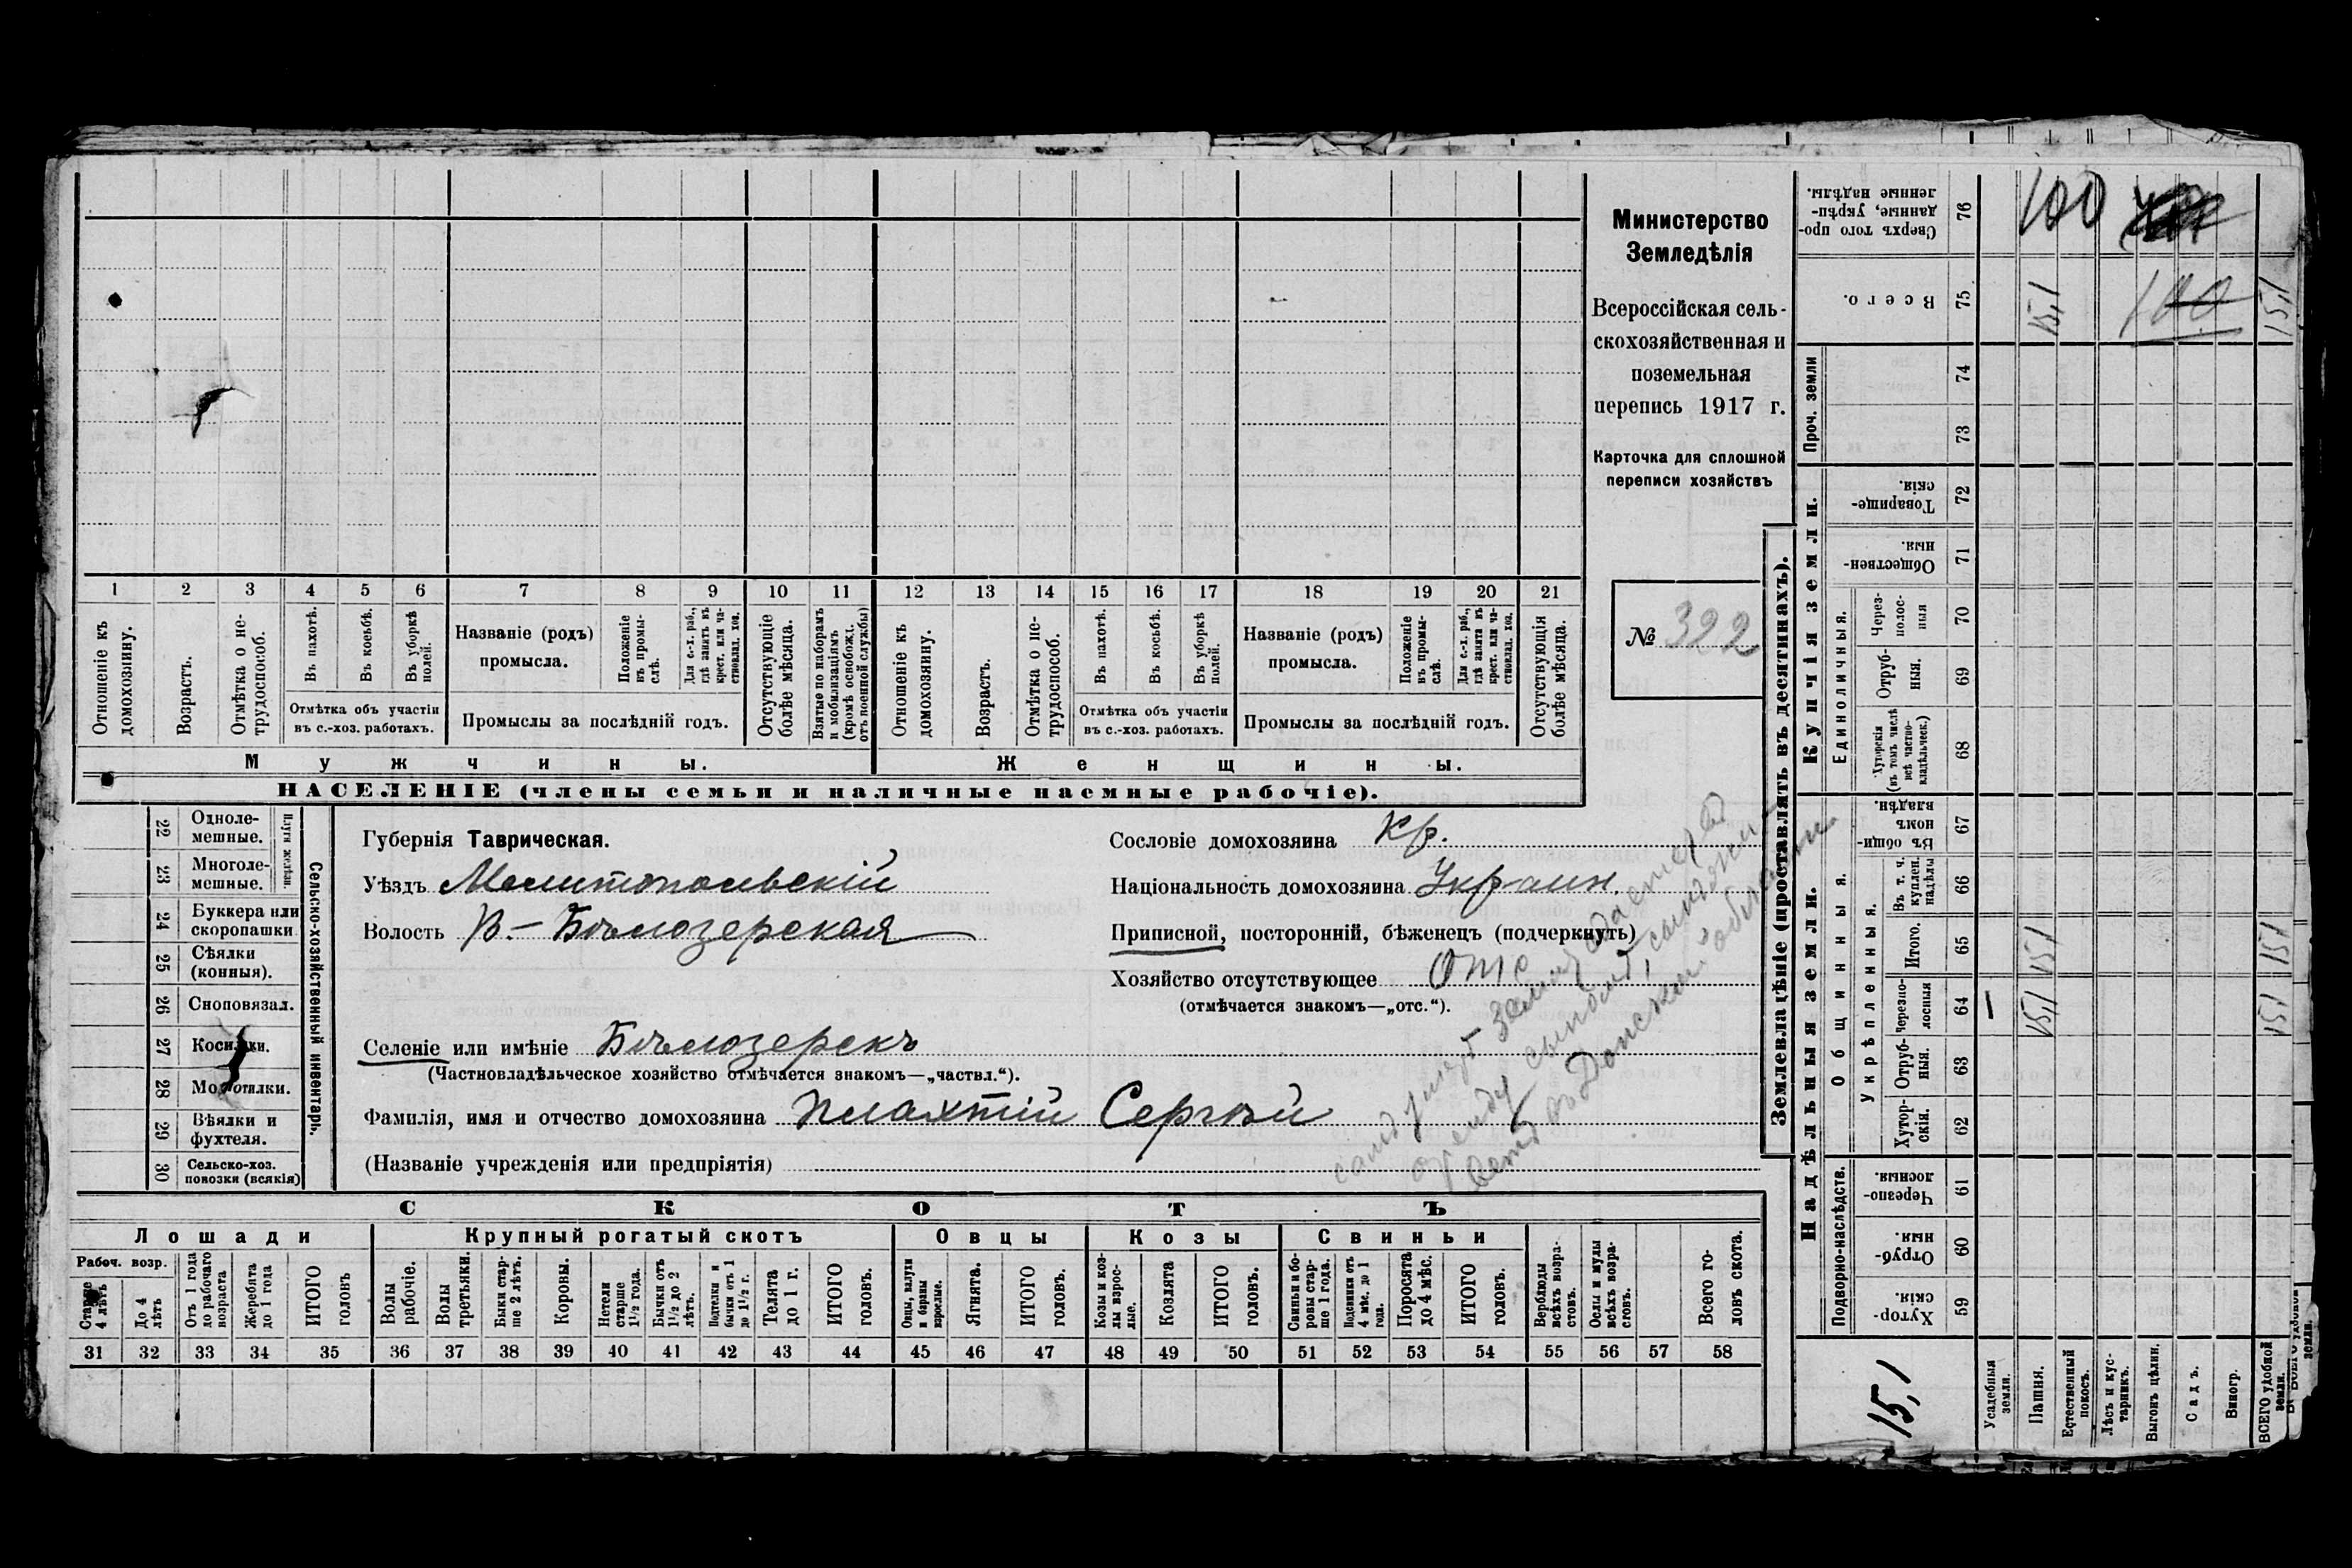 Министерство
Земледѣлія
Всероссійская сель-
скохозяйственная и
поземельная
перепись 1917 г.
Карточка для сплошной
переписи хозяйствъ
№ 322
1 2 3 4 5 6 7 8 9 10 11 12 13 14 15 16 17 18 19 20 21
Отношеніе къ домохозяину.
Возрастъ.
Отмѣтка о не-трудоспособ.
Въ пахотѣ.
Въ косьбѣ.
Въ уборкѣ полей.
Отмѣтка объ участіи
въ с.-хоз. работахъ.
Названіе (родъ)
промысла.
Положеніе въ промы-слѣ.
Для с.-х. раб., гдѣ занятъ въ крест. или ча-стновлад. хоз.
Промыслы за послѣдній годъ.
Отсутствующіе болѣе мѣсяца.
Взятые по наборамъ и мобилизаціямъ (кромѣ освобожд. отъ военной службы)
Отношеніе къ домохозяину.
Возрастъ.
Отмѣтка о не-трудоспособ.
Въ пахотѣ.
Въ косьбѣ.
Въ уборкѣ полей.
Отмѣтка объ участіи
въ с.-хоз. работахъ.
Названіе (родъ)
промысла.
Положеніе въ промы-слѣ.
Для с.-х. раб., гдѣ занятъ въ крест. или ча-стновлад. хоз.
Промыслы за послѣдній годъ.
Отсутствующія болѣе мѣсяца.
Мужчины.
Женщины.
НАСЕЛЕНІЕ (члены семьи и наличные наемные рабочіе).
Сельско-хозяйственный инвентарь.
Плуги желѣзн.
22 Одноле-мешные.
23 Многоле-мешные.
24 Буккера или скоропашки
25 Сѣялки (конныя).
26 Сноповязал.
27 Косилки.
28 Молотилки.
29 Вѣялки и фухтеля.
30 Сельско-хоз. повозки (всякія)
Губернія Таврическая.
Уѣздъ Мелитопольскій
Волость В.-Бѣлозерская
Сословіе домохозяина Кр.
Національность домохозяина Украин.
Приписной, посторонній, бѣженецъ (подчеркнуть)
Хозяйство отсутствующее Отс
(отмѣчается знакомъ—„отс.“).
Селеніе или имѣніе Бѣлозерскъ
(Частновладѣльческое хозяйство отмѣчается знакомъ—„частвл.“).
Фамилія, имя и отчество домохозяина Плахтій Сергѣй
(Названіе учрежденія или предпріятія)
СКОТЪ
Лошади
Крупный рогатый скотъ
Овцы
Козы
Свиньи
Рабоч. возр.
Старше 4 лѣтъ
До 4 лѣтъ
Отъ 1 года до рабочаго возраста
Жеребята до 1 года
ИТОГО головъ
Волы рабочіе.
Волы третьяки.
Быки стар-ше 2 лѣтъ.
Коровы.
Нетели старше 1½ года.
Бычки отъ 1½ до 2 лѣтъ.
Подтелки и бычки отъ 1 до 1½ г.
Телята до 1 г.
ИТОГО головъ.
Овцы, валухи и бараны взрослые.
Ягнята.
ИТОГО головъ.
Козы и коз-лы взрос-лые.
Козлята
ИТОГО головъ.
Свиньи и бо-ровы стар-ше 1 года.
Подсвинки отъ 4 мѣс. до 1 года.
Поросята до 4 мѣс.
ИТОГО головъ.
Верблюды всѣхъ возра-стовъ.
Ослы и мулы всѣхъ возра-стовъ.
Всего го-ловъ скота.
31 32 33 34 35 36 37 38 39 40 41 42 43 44 45 46 47 48 49 50 51 52 53 54 55 56 57 58
Землевладѣніе (проставлять въ десятинахъ).
Купчія земли.
Надѣльныя земли.
Проч. земли
Единоличныя.
Общинныя.
Укрѣпленныя.
Подворно-наслѣдств.
Сверхъ того про-данные, укрѣп-ленные надѣлы. 76 100
Всего. 75 15,1 100 15,1
74
73
Товарище-скія. 72
Обществен-ныя. 71
Через-полос-ныя 70
Отруб-ныя. 69
Хуторскія (въ томъ числѣ всѣ частно-владѣльческ.) 68
Въ общи-номъ владѣн. 67
Въ т. ч. куплен. надѣлы 66
Итого. 65 15,1 15,1
Черезпо-лосныя 64 15,1 15,1
Отруб-ныя. 63
Хутор-скія. 62
Черезпо-лосныя 61
Отруб-ныя. 60
Хутор-скія. 59
15,1
Усадебныя земли.
Пашня.
Естественный покосъ.
Лѣсъ и кус-тарникъ.
Выгонъ цѣлин.
Садъ.
Виногр.
ВСЕГО удобной земли.